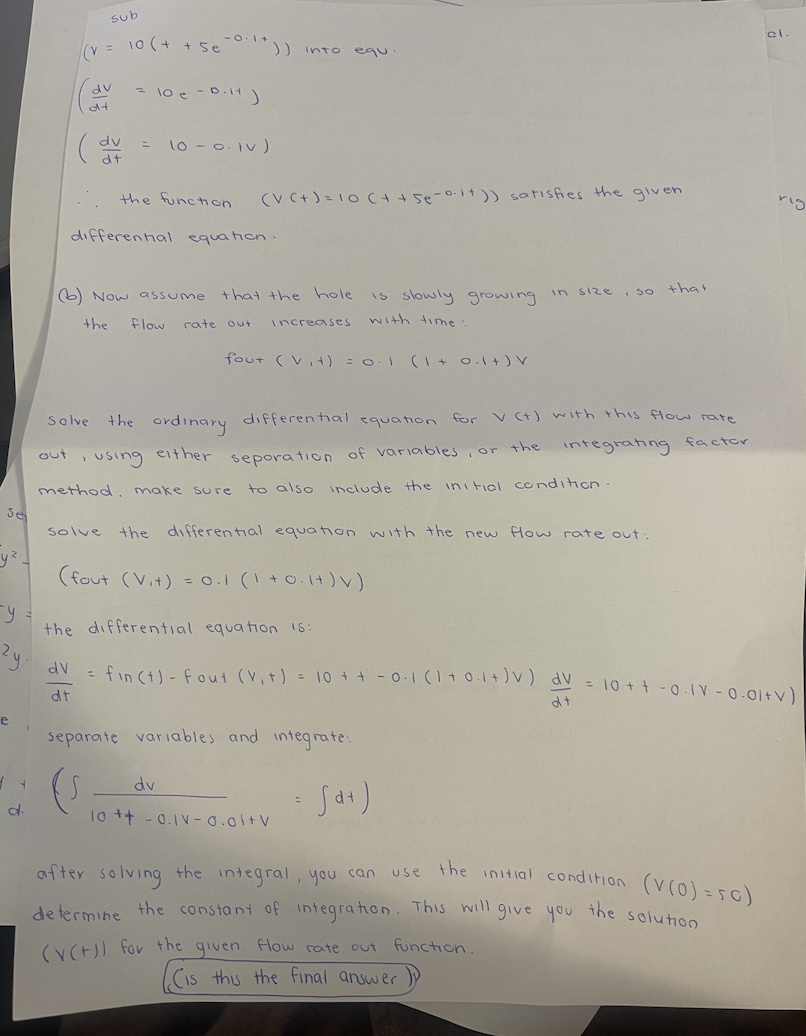 sub
(V = 10(t + 5e^-0.1t)) into equ.
(dv/dt = 10e-0.1t)
(dv/dt = 10-0.1V)
∴ the function (V(t)=10(t+5e^-0.1t)) satisfies the given
differential equation.
(b) Now assume that the hole is slowly growing in size, so that
the flow rate out increases with time:
fout (V,t) = 0.1 (1 + 0.1t)V
solve the ordinary differential equation for V(t) with this flow rate
out, using either seporation of variables, or the integrating factor
method. make sure to also include the initial condition.
solve the differential equation with the new flow rate out:
(fout (V,t) = 0.1 (1+0.1t)V)
the differential equation is:
dV/dt = fin(t) - fout (V,t) = 10 + t - 0.1(1+0.1t)V) dV/dt = 10+t-0.1V-0.01tV)
separate variables and integrate:
(∫ dv/10+t-0.1V-0.01tV = ∫dt)
after solving the integral, you can use the initial condition (V(0)=50)
determine the constant of integration. This will give you the solution
(V(t)) for the given flow rate out function.
(is this the final answer)
cl.
rig
se
y²-
-y=
2y.
e
d.